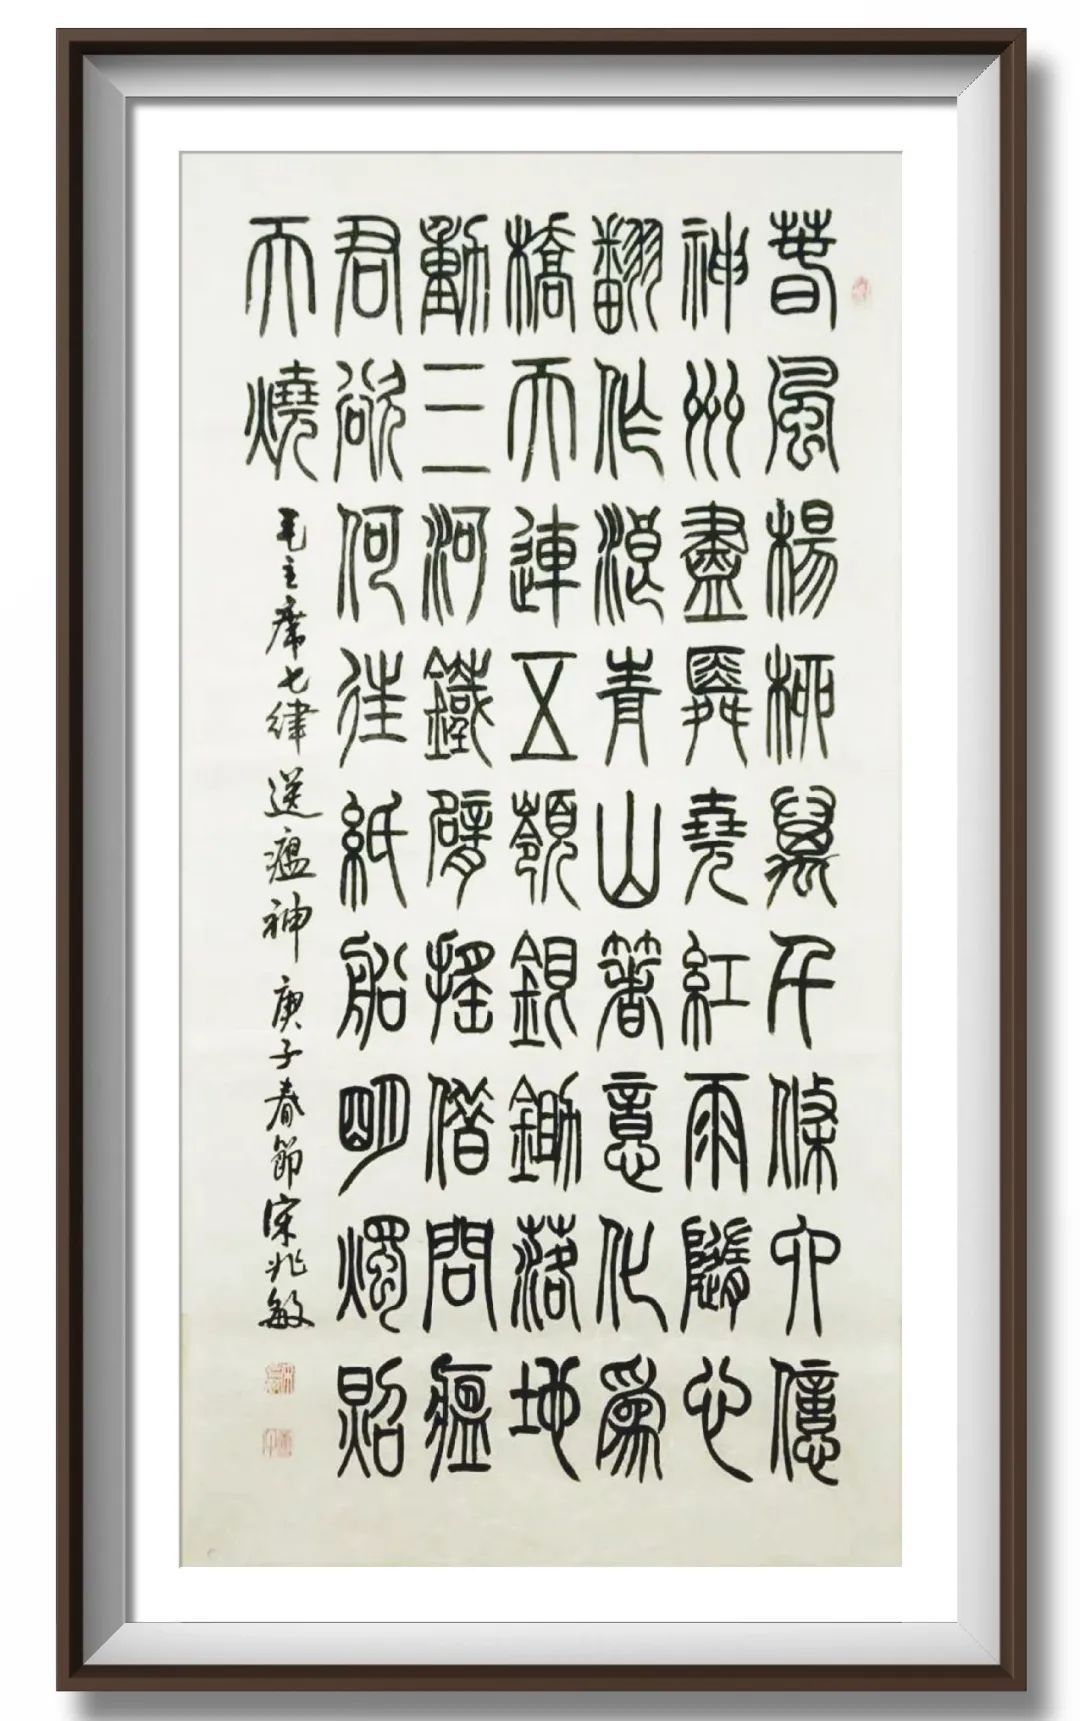 春風楊柳萬千條六億
神州盡舜堯紅雨隨心
翻作浪青山著意化為
橋天連五嶺銀鋤落地
動三河鐵臂搖借問瘟
君欲何往紙船明燭照
天燒
毛主席七律送瘟神庚子春節宋兆敏